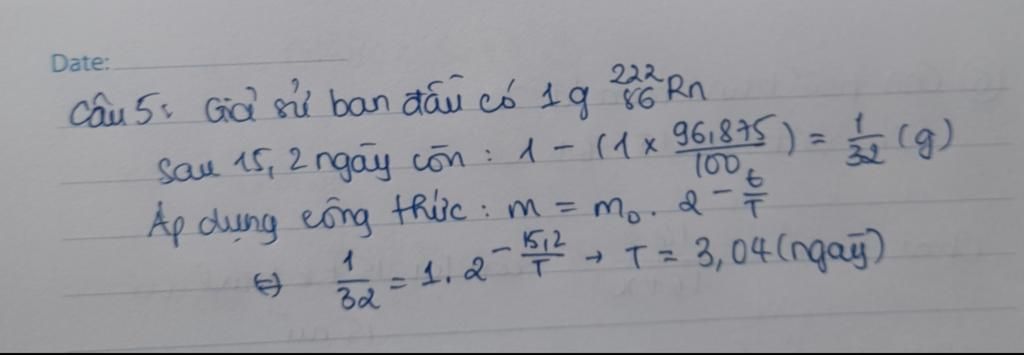 Date:
Câu 5: Giả sử ban đầu có 1g ²²²₈₆Rn
sau 15,2 ngày còn : 1 - (1 × 96,875/100) = 1/32 (g)
Áp dụng công thức : m = m₀ . 2^(-t/T)
⇔ 1/32 = 1. 2^(-15,2/T) → T = 3,04 (ngày)